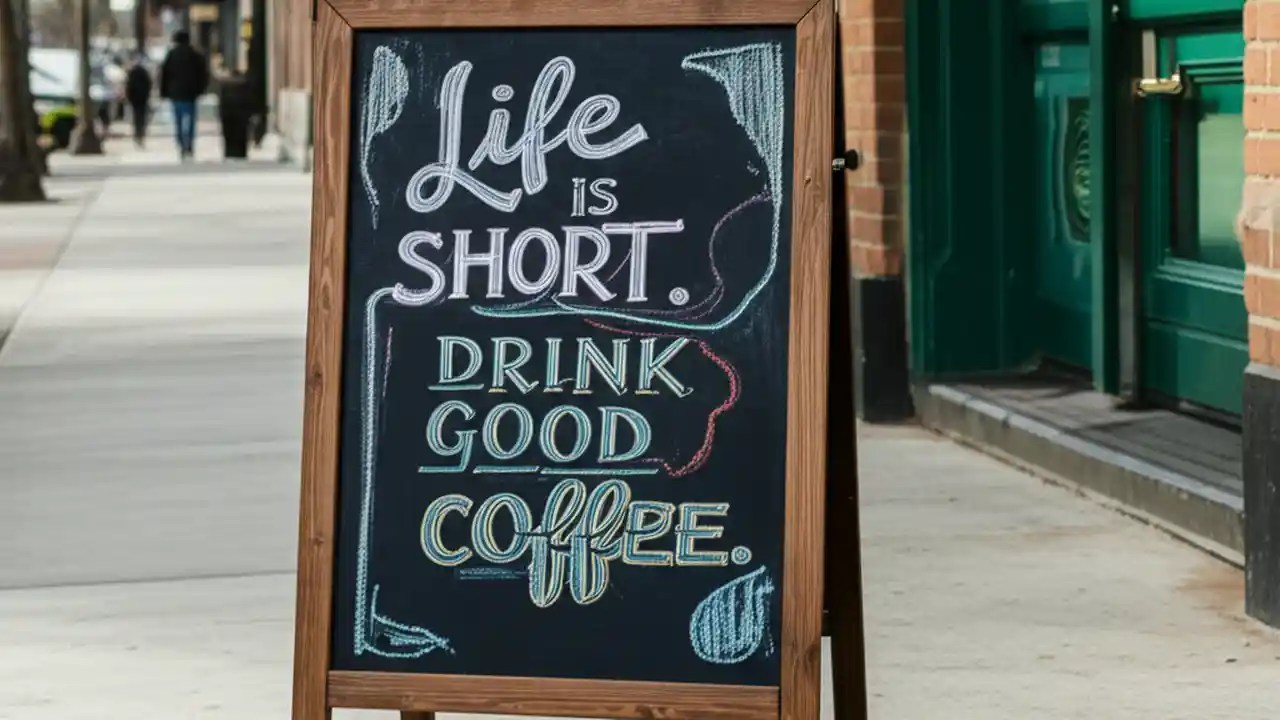 Life
IS
SHORT.
DRINK
GOOD
COffEE.